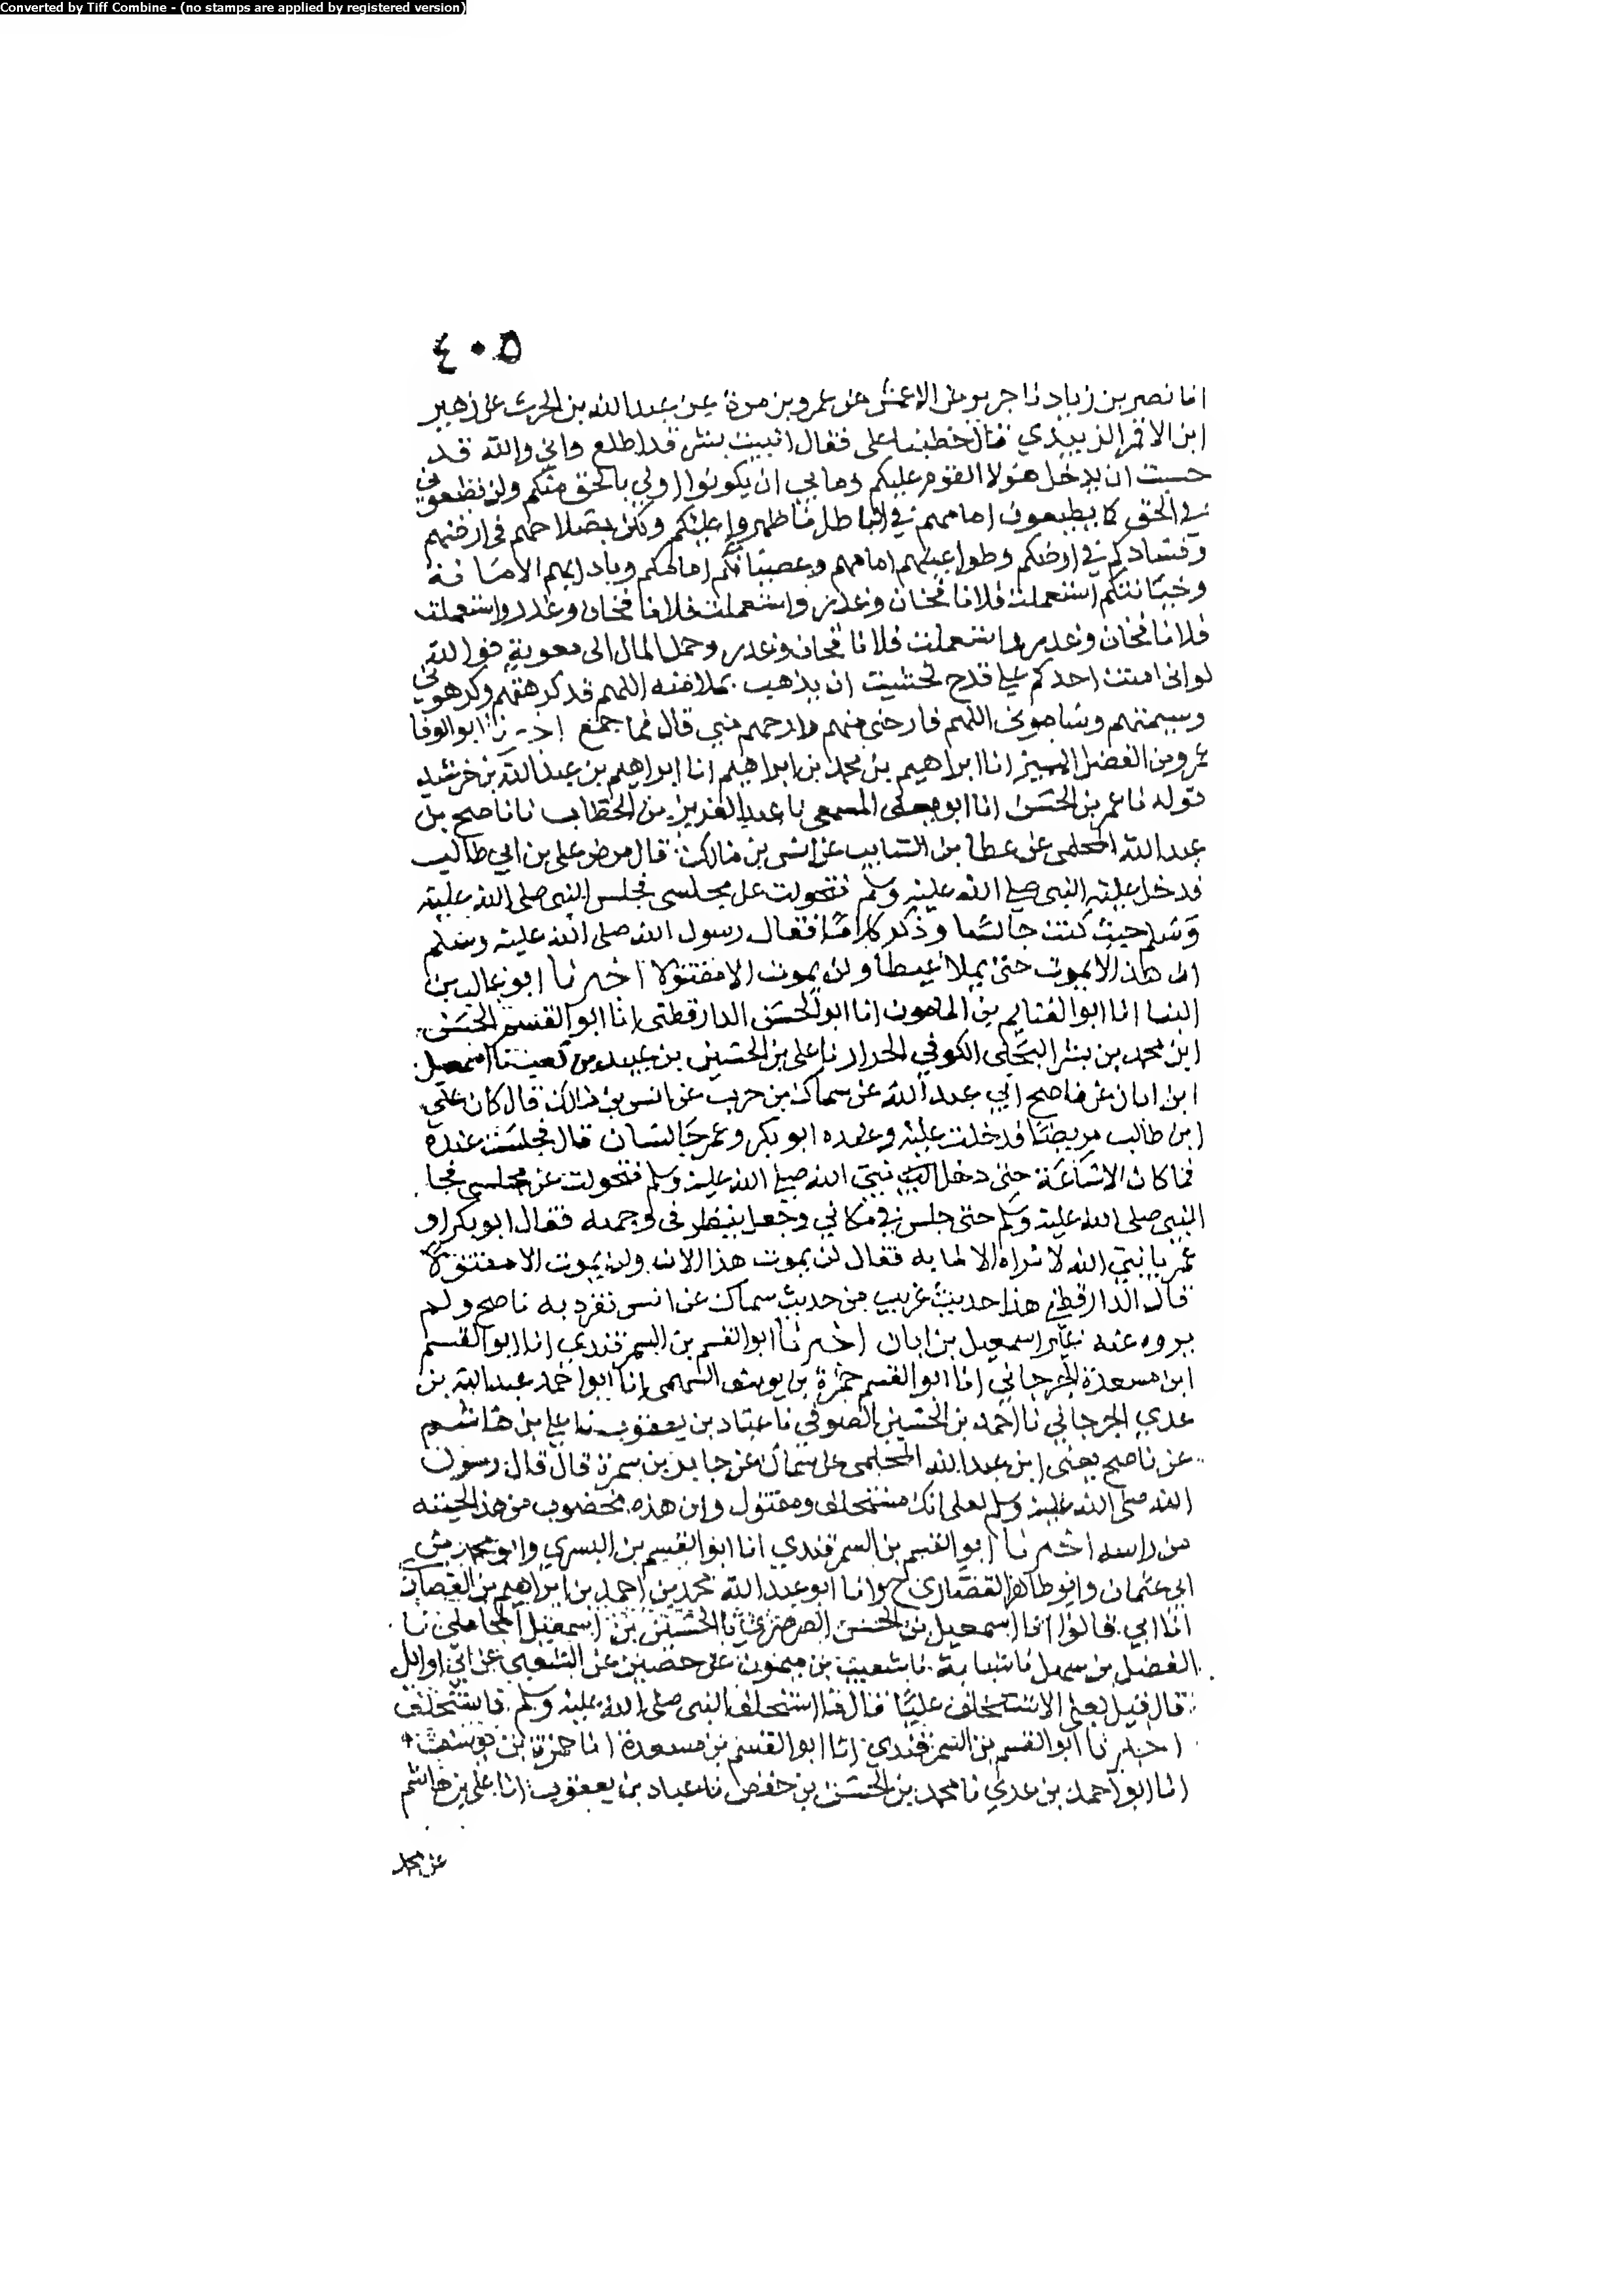 Converted by Tiff Combine - (no stamps are applied by registered version)
٤٠٥
انا نصر بن زياد نا جرير عن الاعمش عن عمرو بن مرة عن عبد الله بن الحرث عن زهير
ابن الاقمر الزبيدي قال خطبنا على فقال انبيت بشر قد اطلع واني والله قد
حسبت ان يدخل هولا القوم عليكم وما بي ان يكونوا اولي بالحق منكم ولن تطيعوني
في الحق كما يطيعون امامهم في الباطل فا ظهروا عليكم ولكن بصلاحهم في ارضهم
وفسادكم في ارضكم وطواعيتهم امامهم وعصيانكم امامكم وبادايهم الامانة
وخيانتكم استعملت فلانا فخان وغدر واستعملت فلانا فخان وغدر واستعملت
فلانا فخان وغدر واستعملت فلانا فخان وغدر وحمل المال الى معوية فوالله
لو انى امنت احدكم على قدح لخشيت ان يذهب بملاقته اللهم قد كرهتهم وكرهوني
وسيمتهم وساموني اللهم فارحني منهم وارحهم مني قال فما جمع نا ابو الوفا
عمر بن الفضل المميز انا ابراهيم بن محمد بن ابراهيم انا ابراهيم بن عبد الله بن خرشيد
قوله نا عمر بن الحسن انا ابو يعلى المسمعى نا عبد العزيز بن الخطاب نا ناصح بن
عبد الله المحلمى عن عطا بن السايب عن انس بن مالك قال مرض على بن ابي طالب
فدخل عليه النبى صلى الله عليه وسلم فتحولت عن مجلسى فجلس النبى صلى الله عليه
وسلم حيث كنت جالسا وذكر كلاما فقال رسول الله صلى الله عليه وسلم
ان هذا لا يموت حتى يملا غيظا ولن يموت الا مقتولا اخبرنا ابو غالب بن
البنا انا ابو الغنايم بن المامون انا ابو الحسن الدارقطنى انا ابو القسم الحسن
ابن محمد بن بشر البجلى الكوفي الخزاز نا على بن الحسين بن عبيد بن كعب نا اسمعيل
ابن ابان عن ناصح ابي عبد الله عن سماك بن حرب عن انس بن مالك قال كان على
ابن طالب مريضا فدخلت عليه وعنده ابو بكر وعمر جالسان قال فجلست عنده
فما كان الا ساعة حتى دخل نبي الله صلى الله عليه وسلم فتحولت عن مجلسى فجا
النبى صلى الله عليه وسلم حتى جلس في مكاني وجعل ينظر فى وجهه فقال ابو بكر او
عمر يا نبي الله لا نراه الا لما به فقال لن يموت هذا الان ولن يموت الا مقتولا
قال الدارقطنى هذا حديث غريب من حديث سماك عن انس تفرد به ناصح ولم
يروه عنه غير اسمعيل بن ابان اخبرنا ابو القسم بن السمرقندي انا ابو القسم
ابن مسعدة الجرجاني انا ابو القسم حمزة بن يوسف السهمى انا ابو احمد عبد الله بن
عدي الجرجاني نا احمد بن الحسين الصوفي نا عباد بن يعقوب نا على بن هاشم
عن ناصح يعنى ابن عبد الله المحلمى عن سماك عن جابر بن سمرة قال قال رسول
الله صلى الله عليه وسلم لعلى انك مستخلف ومقتول وان هذه مخضوب من هذا لحيته
من راسه اخبرنا ابو القسم بن السمرقندي انا ابو القسم بن البسري وابو محمد بن
ابي عثمان وابو طاهر القصاري ح وانا ابو عبد الله محمد بن احمد بن ابراهيم بن القصارى
انا ابي قالوا انا اسمعيل بن الحسن الصرصري نا الحسين بن اسمعيل المحاملى نا
الفضل بن سهل نا شبابة نا شعيب بن ميمون عن حصين عن الشعبي عن ابي وايل
قال قيل لعلى الا تستخلف علينا قال ما استخلف النبى صلى الله عليه وسلم فاستخلف
اخبرنا ابو القسم بن السمرقندي انا ابو القسم بن مسعدة انا حمزة بن يوسف
انا ابو احمد بن عدي نا محمد بن الحسن بن حفص نا عباد بن يعقوب انا على بن هاشم
عن محمد